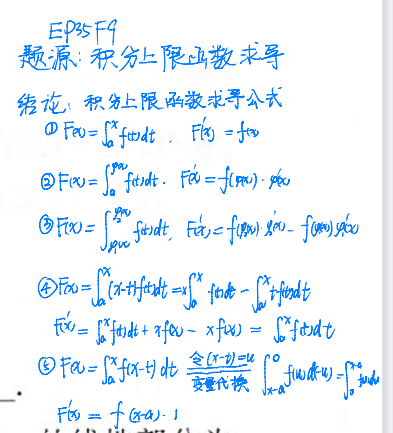 EP35 F9
题源：积分上限函数求导
结论：积分上限函数求导公式
① F(x)=∫ₐˣ f(t)dt . F'(x) = f(x)
② F(x)=∫ₐ^φ(x) f(t)dt . F'(x) = f[φ(x)]·φ'(x)
③ F(x)=∫_φ₁(x)^φ₂(x) f(t)dt, F'(x)= f[φ₂(x)]·φ₂'(x) - f[φ₁(x)]φ₁'(x)
④ F(x)=∫ₐˣ (x-t)f(t)dt = x∫ₐˣ f(t)dt - ∫ₐˣ t·f(t)dt
F'(x) = ∫ₐˣ f(t)dt + xf(x) - xf(x) = ∫ₐˣ f(t)dt
⑤ F(x)=∫ₐˣ f(x-t) dt 令(x-t)=u 变量代换 ∫_x-a^0 f(u)d(-u) = ∫₀^x-a f(u)du
F'(x) = f(x-a)·1